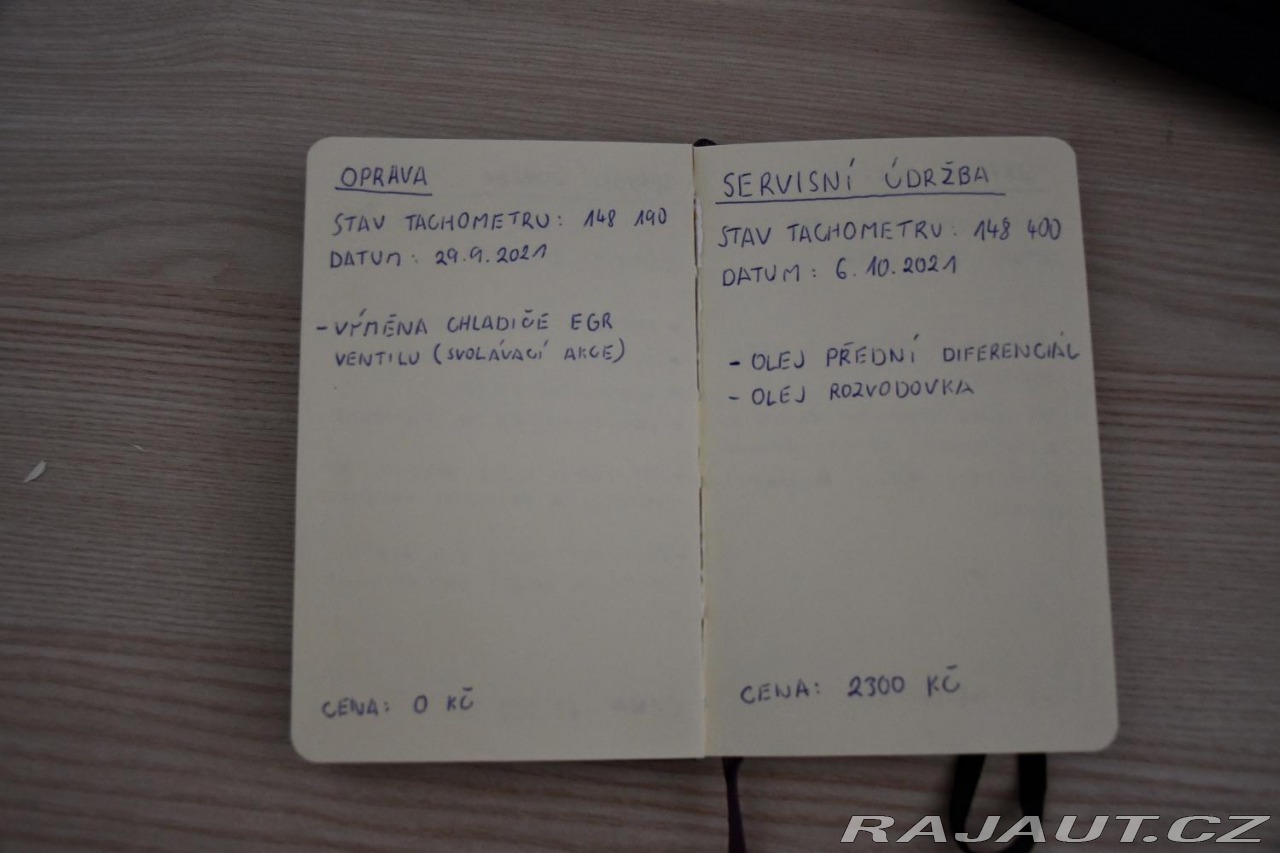 OPRAVA
STAV TACHOMETRU: 148 190
DATUM: 29.9.2021
-VÝMĚNA CHLADIČE EGR
VENTILU (SVOLÁVACÍ AKCE)
CENA: 0 KČ
SERVISNÍ ÚDRŽBA
STAV TACHOMETRU: 148 400
DATUM: 6.10.2021
- OLEJ PŘEDNÍ DIFERENCIÁL
- OLEJ ROZVODOVKA
CENA: 2300 KČ
RAJAUT.CZ